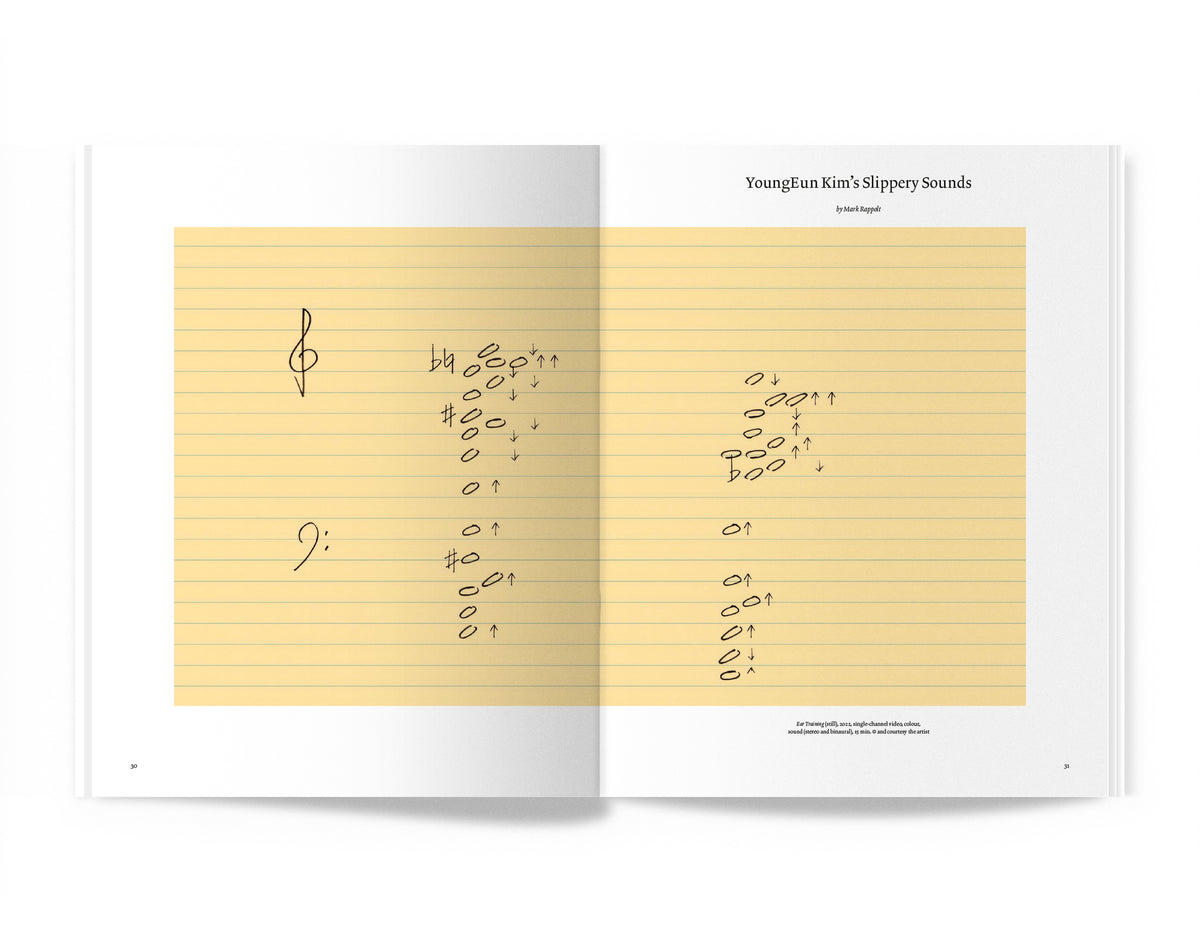 YoungEun Kim’s Slippery Sounds
by Mark Rappolt
Ear Training (still), 2022, single-channel video, colour,
sound (stereo and binaural), 15 min. © and courtesy the artist
30
31